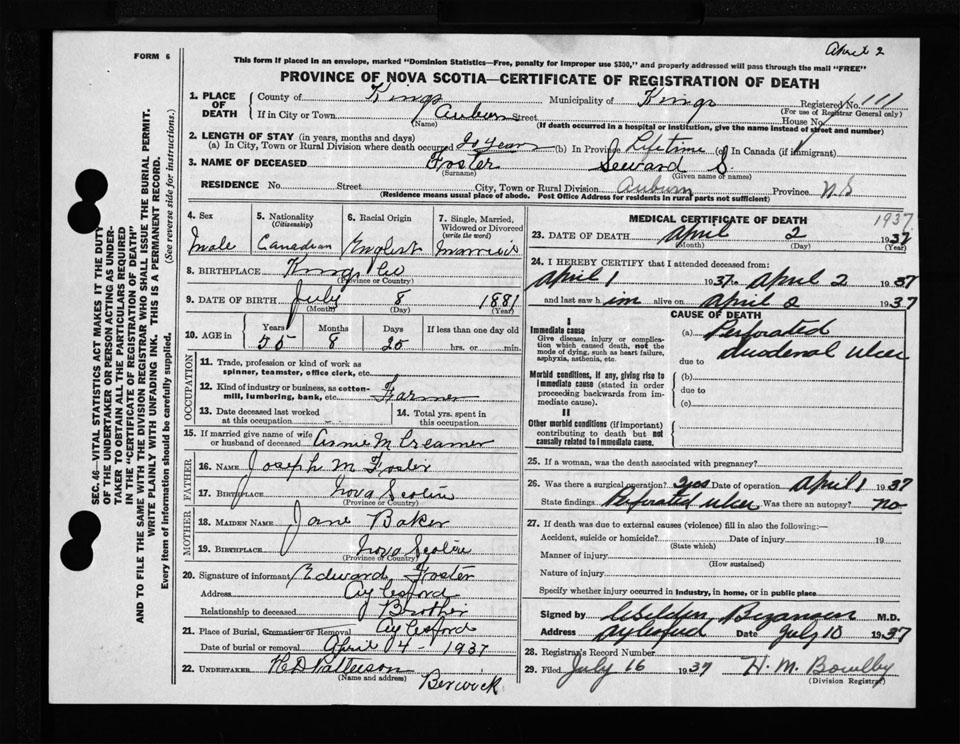 April 2
FORM 6
This form if placed in an envelope, marked "Dominion Statistics—Free, penalty for improper use $300," and properly addressed will pass through the mail "FREE"
PROVINCE OF NOVA SCOTIA—CERTIFICATE OF REGISTRATION OF DEATH
1. PLACE OF DEATH County of Kings Municipality of Kings Registered No. 1111
(For use of Registrar General only)
If in City or Town Auburn Street House No.
(Name) (If death occurred in a hospital or institution, give the name instead of street and number)
2. LENGTH OF STAY (in years, months and days)
(a) In City, Town or Rural Division where death occurred 20 years (b) In Province Lifetime (c) In Canada (if immigrant)
3. NAME OF DECEASED Foster Seward S.
(Surname) (Given name or names)
RESIDENCE No. Street City, Town or Rural Division Auburn Province N.S
(Residence means usual place of abode. Post Office Address for residents in rural parts not sufficient)
4. Sex 5. Nationality (Citizenship) 6. Racial Origin 7. Single, Married, Widowed or Divorced (write the word)
Male Canadian English Married
8. BIRTHPLACE Kings Co
(Province or Country)
9. DATE OF BIRTH July 8 1881
(Month) (Day) (Year)
10. AGE in Years Months Days If less than one day old
55 8 25 hrs. or min.
OCCUPATION
11. Trade, profession or kind of work as spinner, teamster, office clerk, etc.
12. Kind of industry or business, as cotton-mill, lumbering, bank, etc. Farmer
13. Date deceased last worked at this occupation 14. Total yrs. spent in this occupation
15. If married give name of wife or husband of deceased Annie M Creamer
FATHER
16. NAME Joseph M Foster
17. BIRTHPLACE Nova Scotia
MOTHER
18. MAIDEN NAME Jane Baker
19. BIRTHPLACE Nova Scotia
(Province or Country)
20. Signature of informant Edward Foster
Address Aylesford
Relationship to deceased Brother
21. Place of Burial, Cremation or Removal Aylesford
Date of burial or removal April 4 1937
22. UNDERTAKER H D Patterson
(Name and address) Berwick
MEDICAL CERTIFICATE OF DEATH 1937
23. DATE OF DEATH April 2 1937
(Month) (Day) (Year)
24. I HEREBY CERTIFY that I attended deceased from:
April 1 1937 to April 2 1937
and last saw him alive on April 2 1937
CAUSE OF DEATH
I
Immediate cause
Give disease, injury or complication which caused death, not the mode of dying, such as heart failure, asphyxia, asthenia, etc.
(a) Perforated
duodenal ulcer
due to
Morbid conditions, if any, giving rise to immediate cause (stated in order proceeding backwards from immediate cause).
(b)
due to
(c)
II
Other morbid conditions (if important) contributing to death but not causally related to immediate cause.
25. If a woman, was the death associated with pregnancy?
26. Was there a surgical operation? yes Date of operation April 1 1937
State findings Perforated ulcer Was there an autopsy? No
27. If death was due to external causes (violence) fill in also the following:—
Accident, suicide or homicide? Date of injury 19
(State which)
Manner of injury
(How sustained)
Nature of injury
Specify whether injury occurred in industry, in home, or in public place
Signed by M.D.
Address Aylesford Date July 10 1937
28. Registrar's Record Number
29. Filed July 16 1937 H. M. Bowlby
(Division Registrar)
SEC. 46—VITAL STATISTICS ACT MAKES IT THE DUTY
OF THE UNDERTAKER OR PERSON ACTING AS UNDER-
TAKER TO OBTAIN ALL THE PARTICULARS REQUIRED
IN THE "CERTIFICATE OF REGISTRATION OF DEATH"
AND TO FILE THE SAME WITH THE DIVISION REGISTRAR WHO SHALL ISSUE THE BURIAL PERMIT.
WRITE PLAINLY WITH UNFADING INK. THIS IS A PERMANENT RECORD.
Every item of information should be carefully supplied. (See reverse side for instructions.)